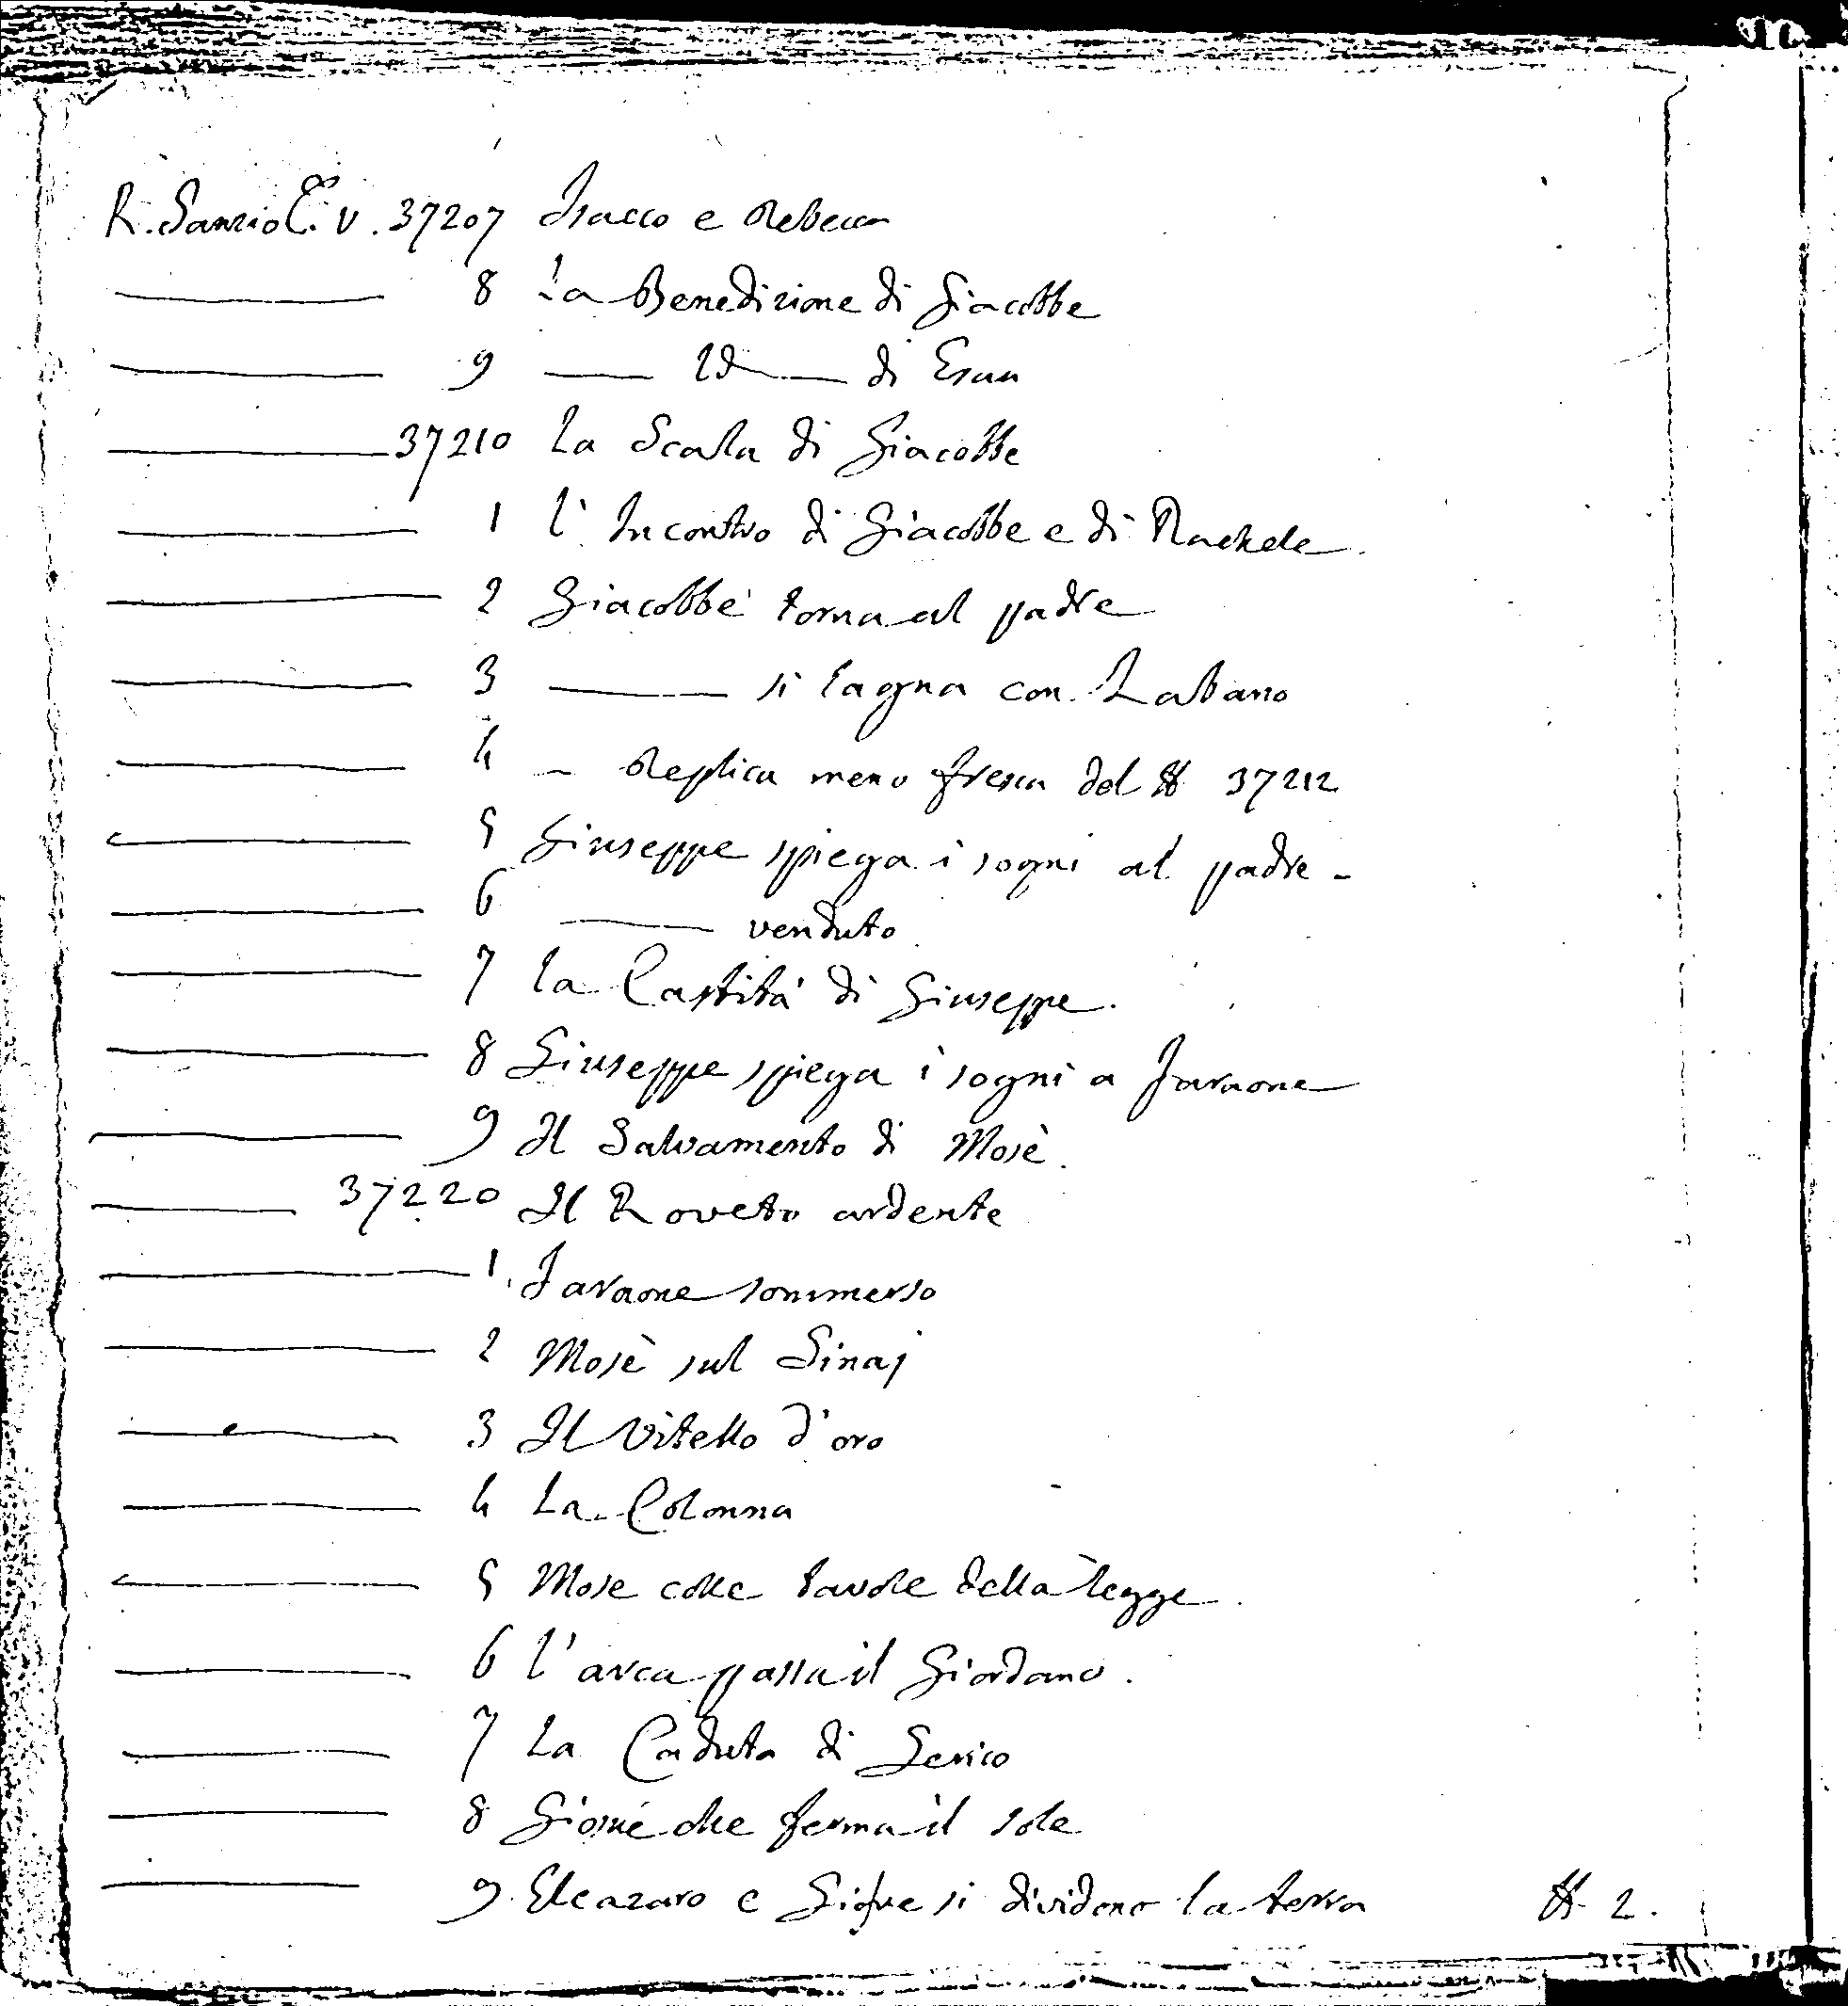 R. Sanzio C. v. 37207 Isacco e Rebecca
8 La Benedizione di Giacobbe
9 —— Id —— di Esau
37210 La Scala di Giacobbe
1 l'Incontro di Giacobbe e di Rachele
2 Giacobbe torna al padre
3 —— si lagna con Labano
4 – Replica meno fresca del N 37212
5 Giuseppe spiega i sogni al padre –
6 —— venduto
7 la Castità di Giuseppe.
8 Giuseppe spiega i sogni a Faraone
9 Il Salvamento di Mosè.
37220 Il Roveto ardente
1. Faraone sommerso
2 Mosè sul Sinaj
3 Il Vitello d'oro
4 La Colonna
5 Mose colle tavole della legge.
6 l'arca passa il Giordano.
7 La Caduta di Gerico
8 Giosuè che ferma il sole
9. Eleazaro e Giosue si dividono la terra N. 2.